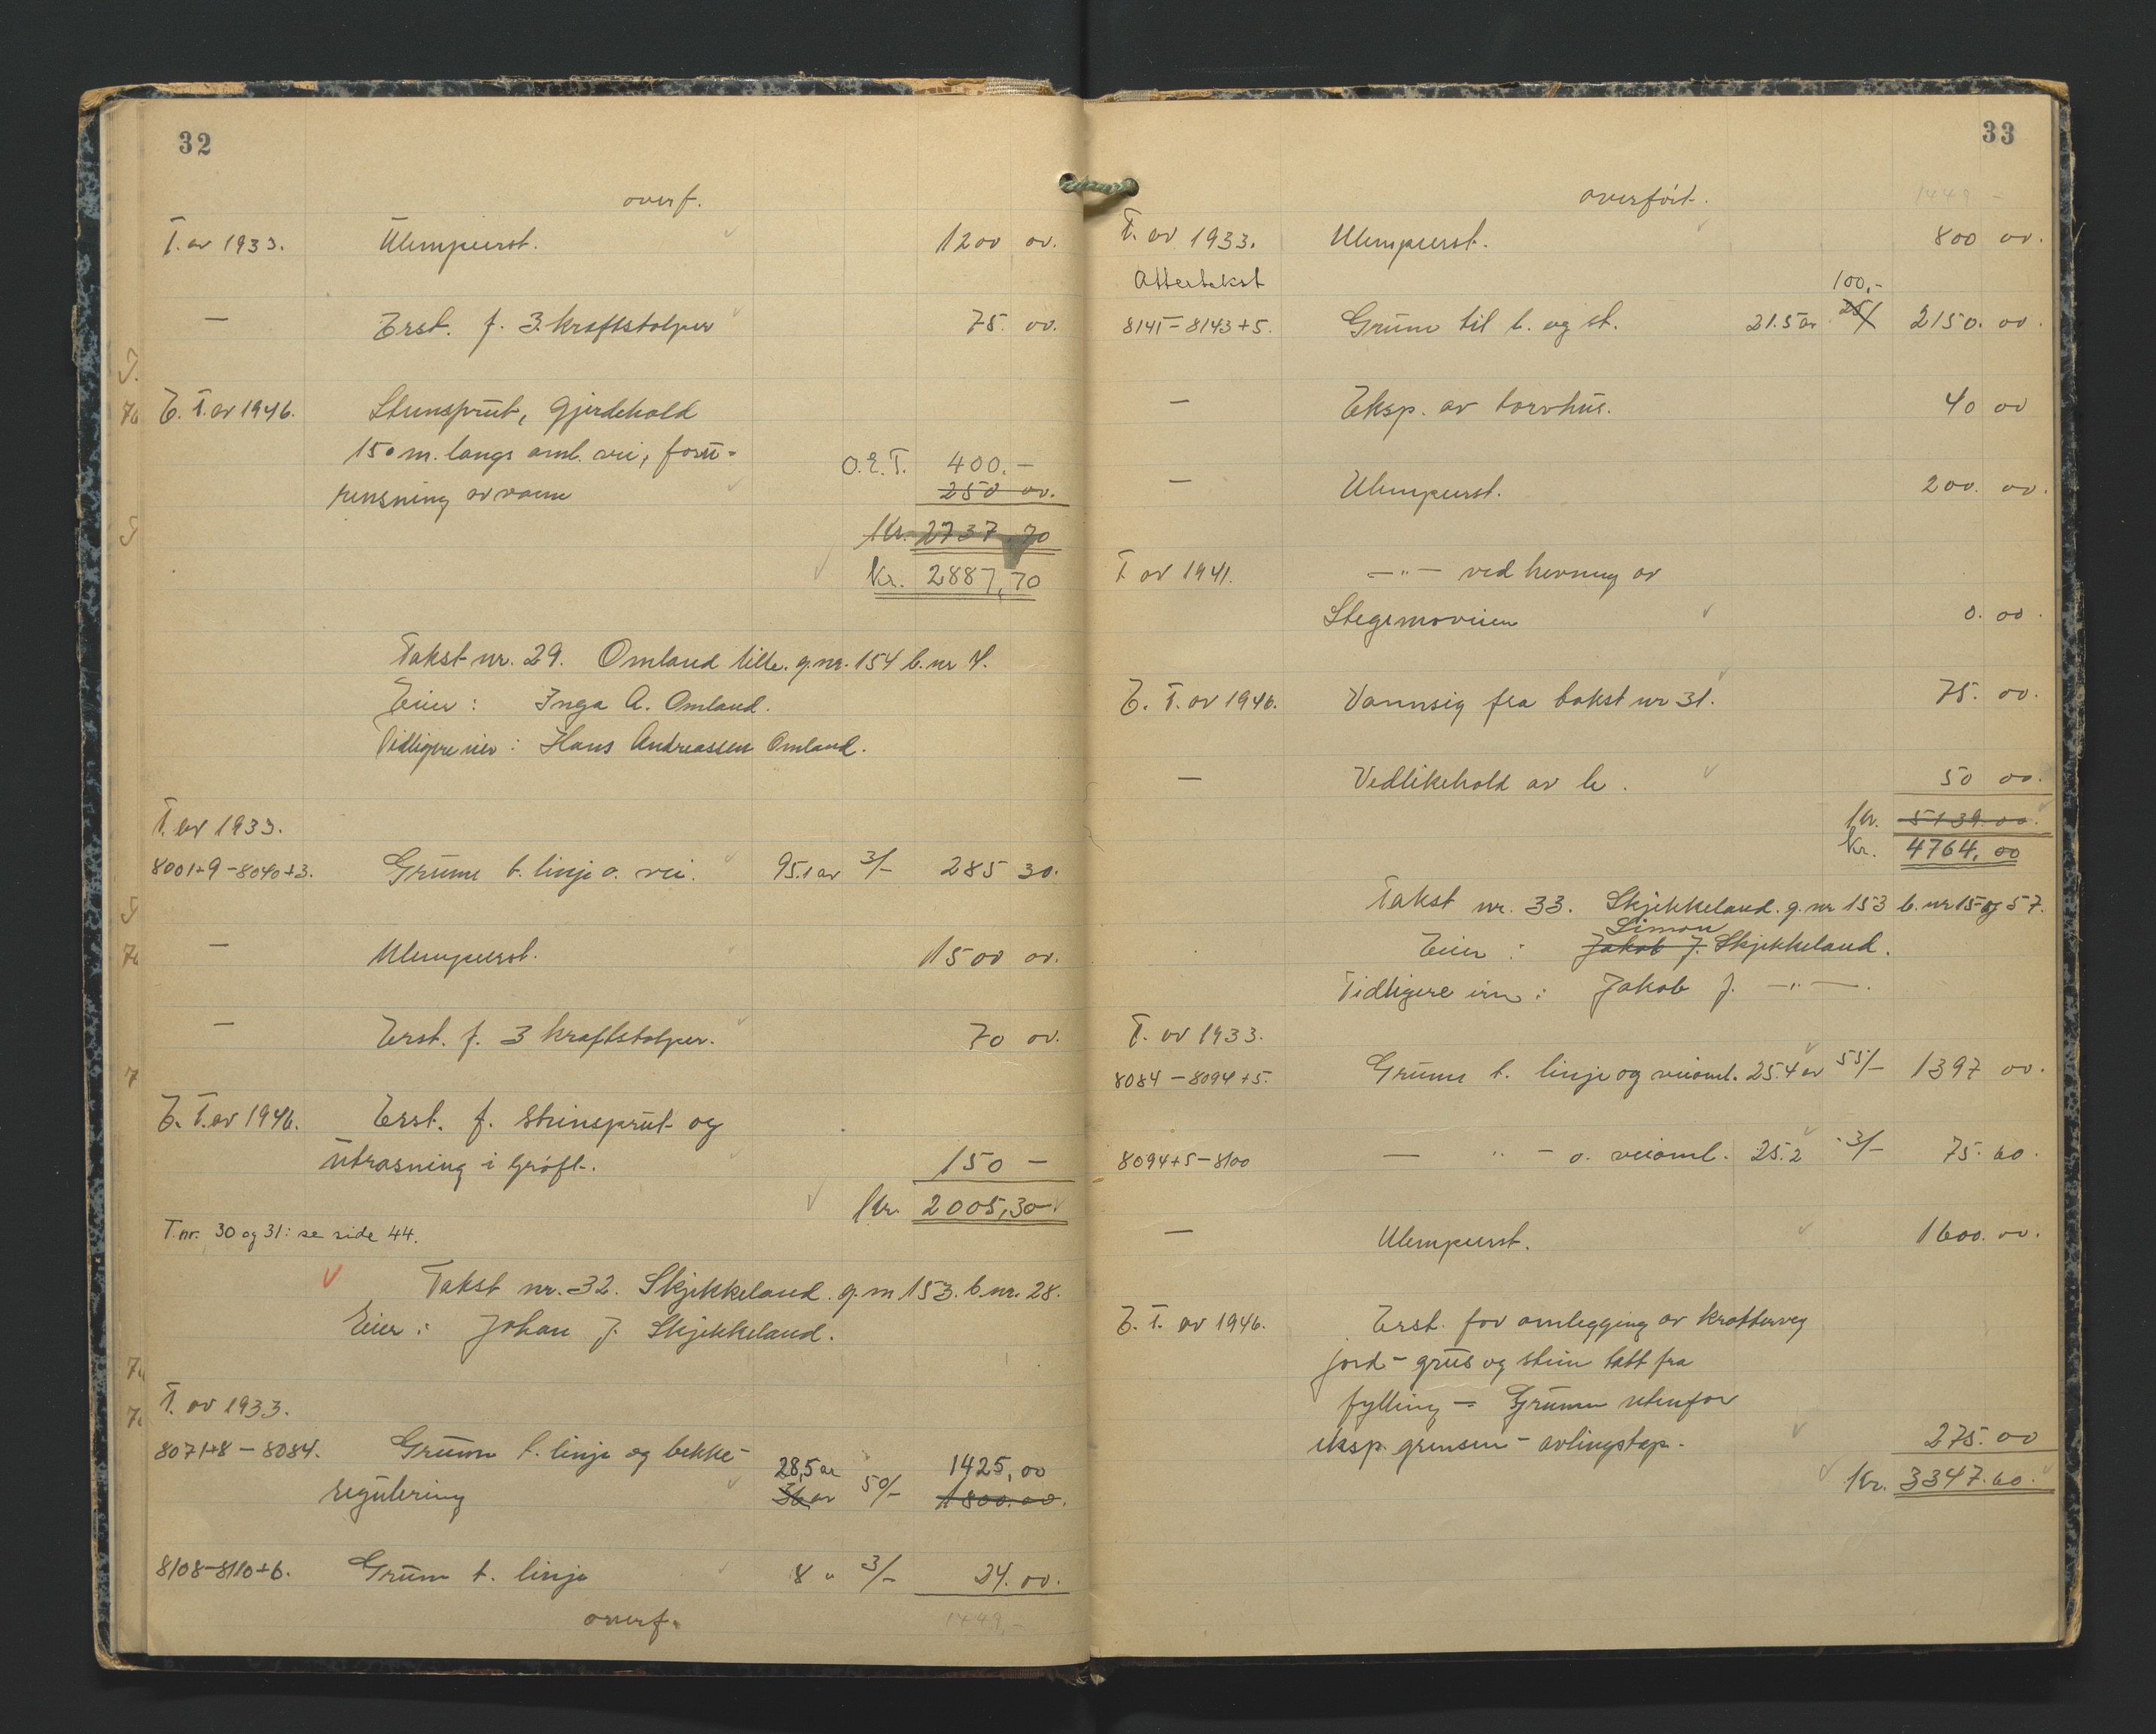 32
overf.
T. av 1933. Ulemperst. 1200 00.
— Erst. f. 3 kraftstolper 75. 00.
E. T. av 1946. Stensprut, gjerdehold
150 m. langs oml. vei, foru-
rensning av vann O.E.T. 400.-
250 00.
Kr. 2737.70
Kr. 2887,70
Takst nr. 29. Omland lille. g.nr. 154 b.nr 4.
Eier: Inga A. Omland.
Tidligere eier: Hans Andreassen Omland.
T. av 1933.
8001+9-8040+3. Grunn t. linje o. vei. 95.1 ar 3/- 285 30.
— Ulemperst. 1500 00.
— Erst. f. 3 kraftstolper. 70 00.
E. T. av 1946. Erst. f. stensprut og
utrasning i grøft. 150 —
Kr. 2005,30
T.nr. 30 og 31: se side 44.
Takst nr. 32. Skjekkeland. g.nr 153. b.nr. 28.
Eier: Johan J. Skjekkeland.
T. av 1933.
8071+8 - 8084. Grunn t. linje og bekke-
28,5 ar 1425,00
regulering 36 ar 50/- 1800.00.
8108-8110+6. Grunn t. linje 8 " 3/- 24.00.
overf. 1449,-
33
overført. 1449 -
T. av 1933. Ulemperst. 800 00.
Attertekst 100,-
8141-8143+5. Grunn til l. og st. 21.5 ar 25/ 2150. 00.
— Eksp. av torvhus. 40 00
— Ulemperst. 200. 00.
T av 1941. —"— ved hevning av
Stegemoveien 0. 00.
E. T. av 1946. Vannsig fra takst nr 31. 75. 00.
— Vedlikehold av le. 50 00.
Kr. 5139.00.
Kr. 4764,00
Takst nr. 33. Skjekkeland. g.nr 153 b.nr 15 og 57.
Simon
Eier: Jakob J. Skjekkeland.
Tidligere eier: Jakob J. —"—.
T. av 1933.
8084 - 8094+5. Grunn t. linje og veioml. 25.4 ar 55/- 1397 00.
8094+5-8100 — " - o. veioml. 25.2 " 3/- 75. 60.
— Ulemperst. 1600. 00.
E. T. av 1946. Erst. for omlegging av kratterveg
jord - grus og sten tatt fra
fylling - Grunn utenfor
eksp. grensen - avlingstap. 275.00
Kr. 3347.60.